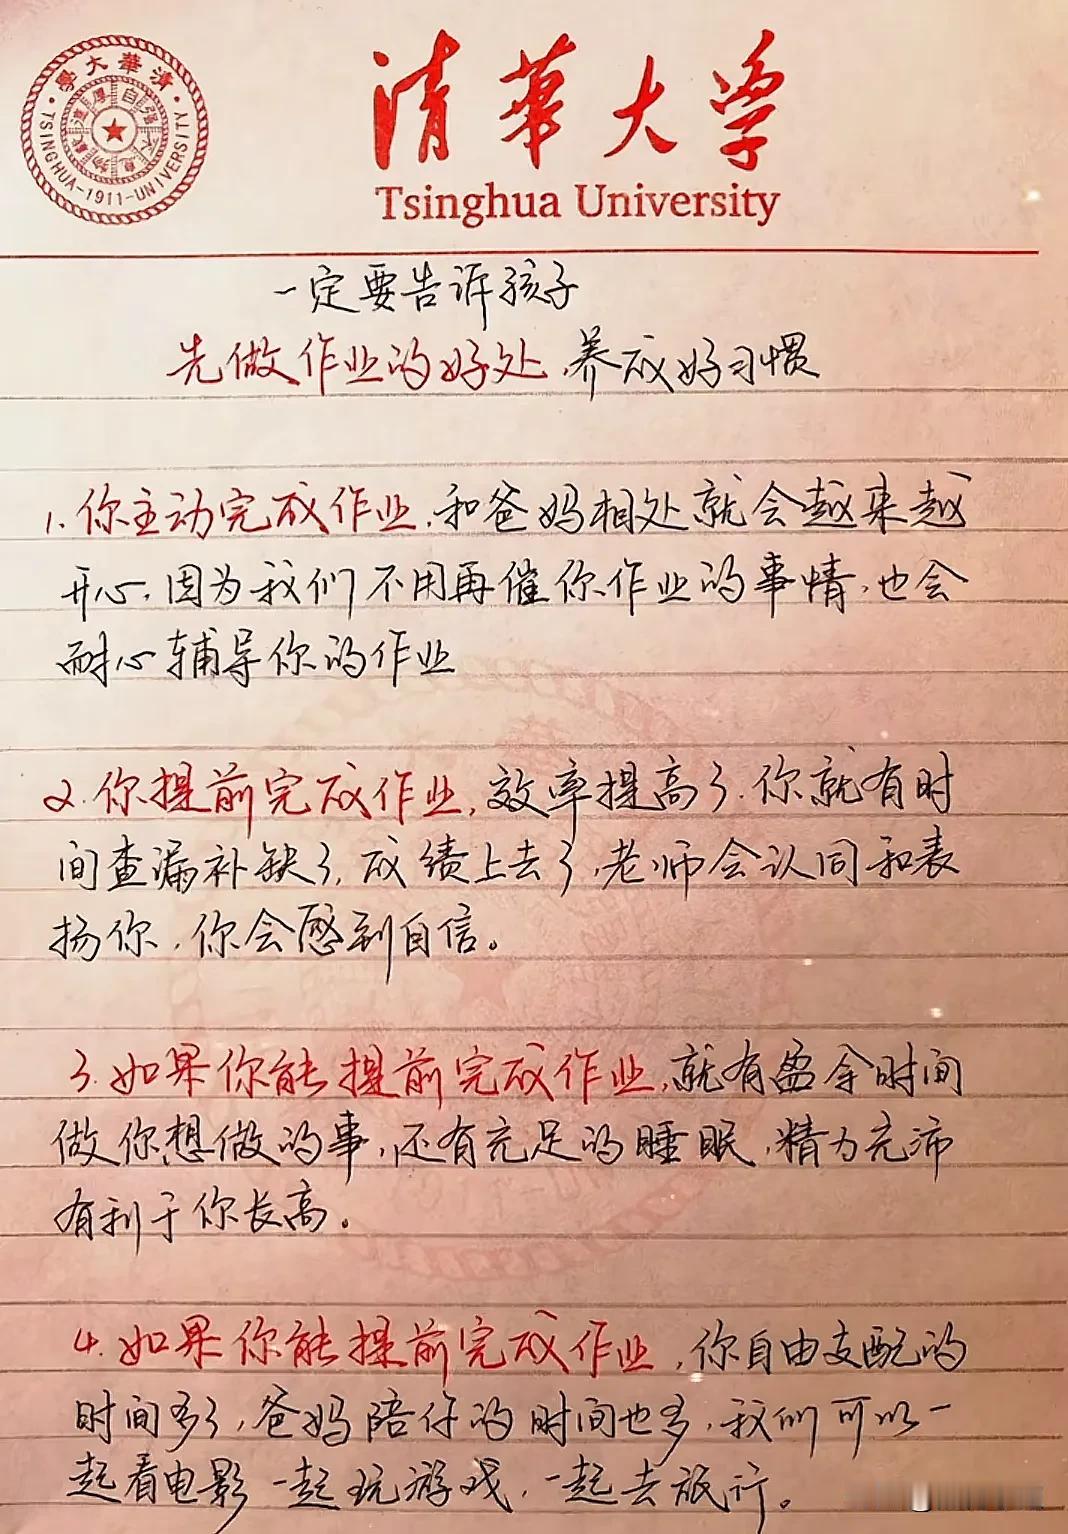 清華大学
Tsinghua University
清華大學
TSINGHUA-1911-UNIVERSITY
自强不息
厚德載物
一定要告诉孩子
先做作业的好处,养成好习惯
1.你主动完成作业,和爸妈相处就会越来越
开心,因为我们不用再催你作业的事情,也会
耐心辅导你的作业
2.你提前完成作业,效率提高了.你就有时
间查漏补缺了,成绩上去了,老师会认同和表
扬你,你会感到自信。
3.如果你能提前完成作业,就有盈余时间
做你想做的事,还有充足的睡眠,精力充沛
有利于你长高。
4.如果你能提前完成作业,你自由支配的
时间多了,爸妈陪伴的时间也多,我们可以一
起看电影一起玩游戏,一起去旅行。